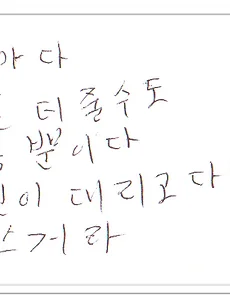 아다
터줄수도
뿐이다
이 대리고다
거라